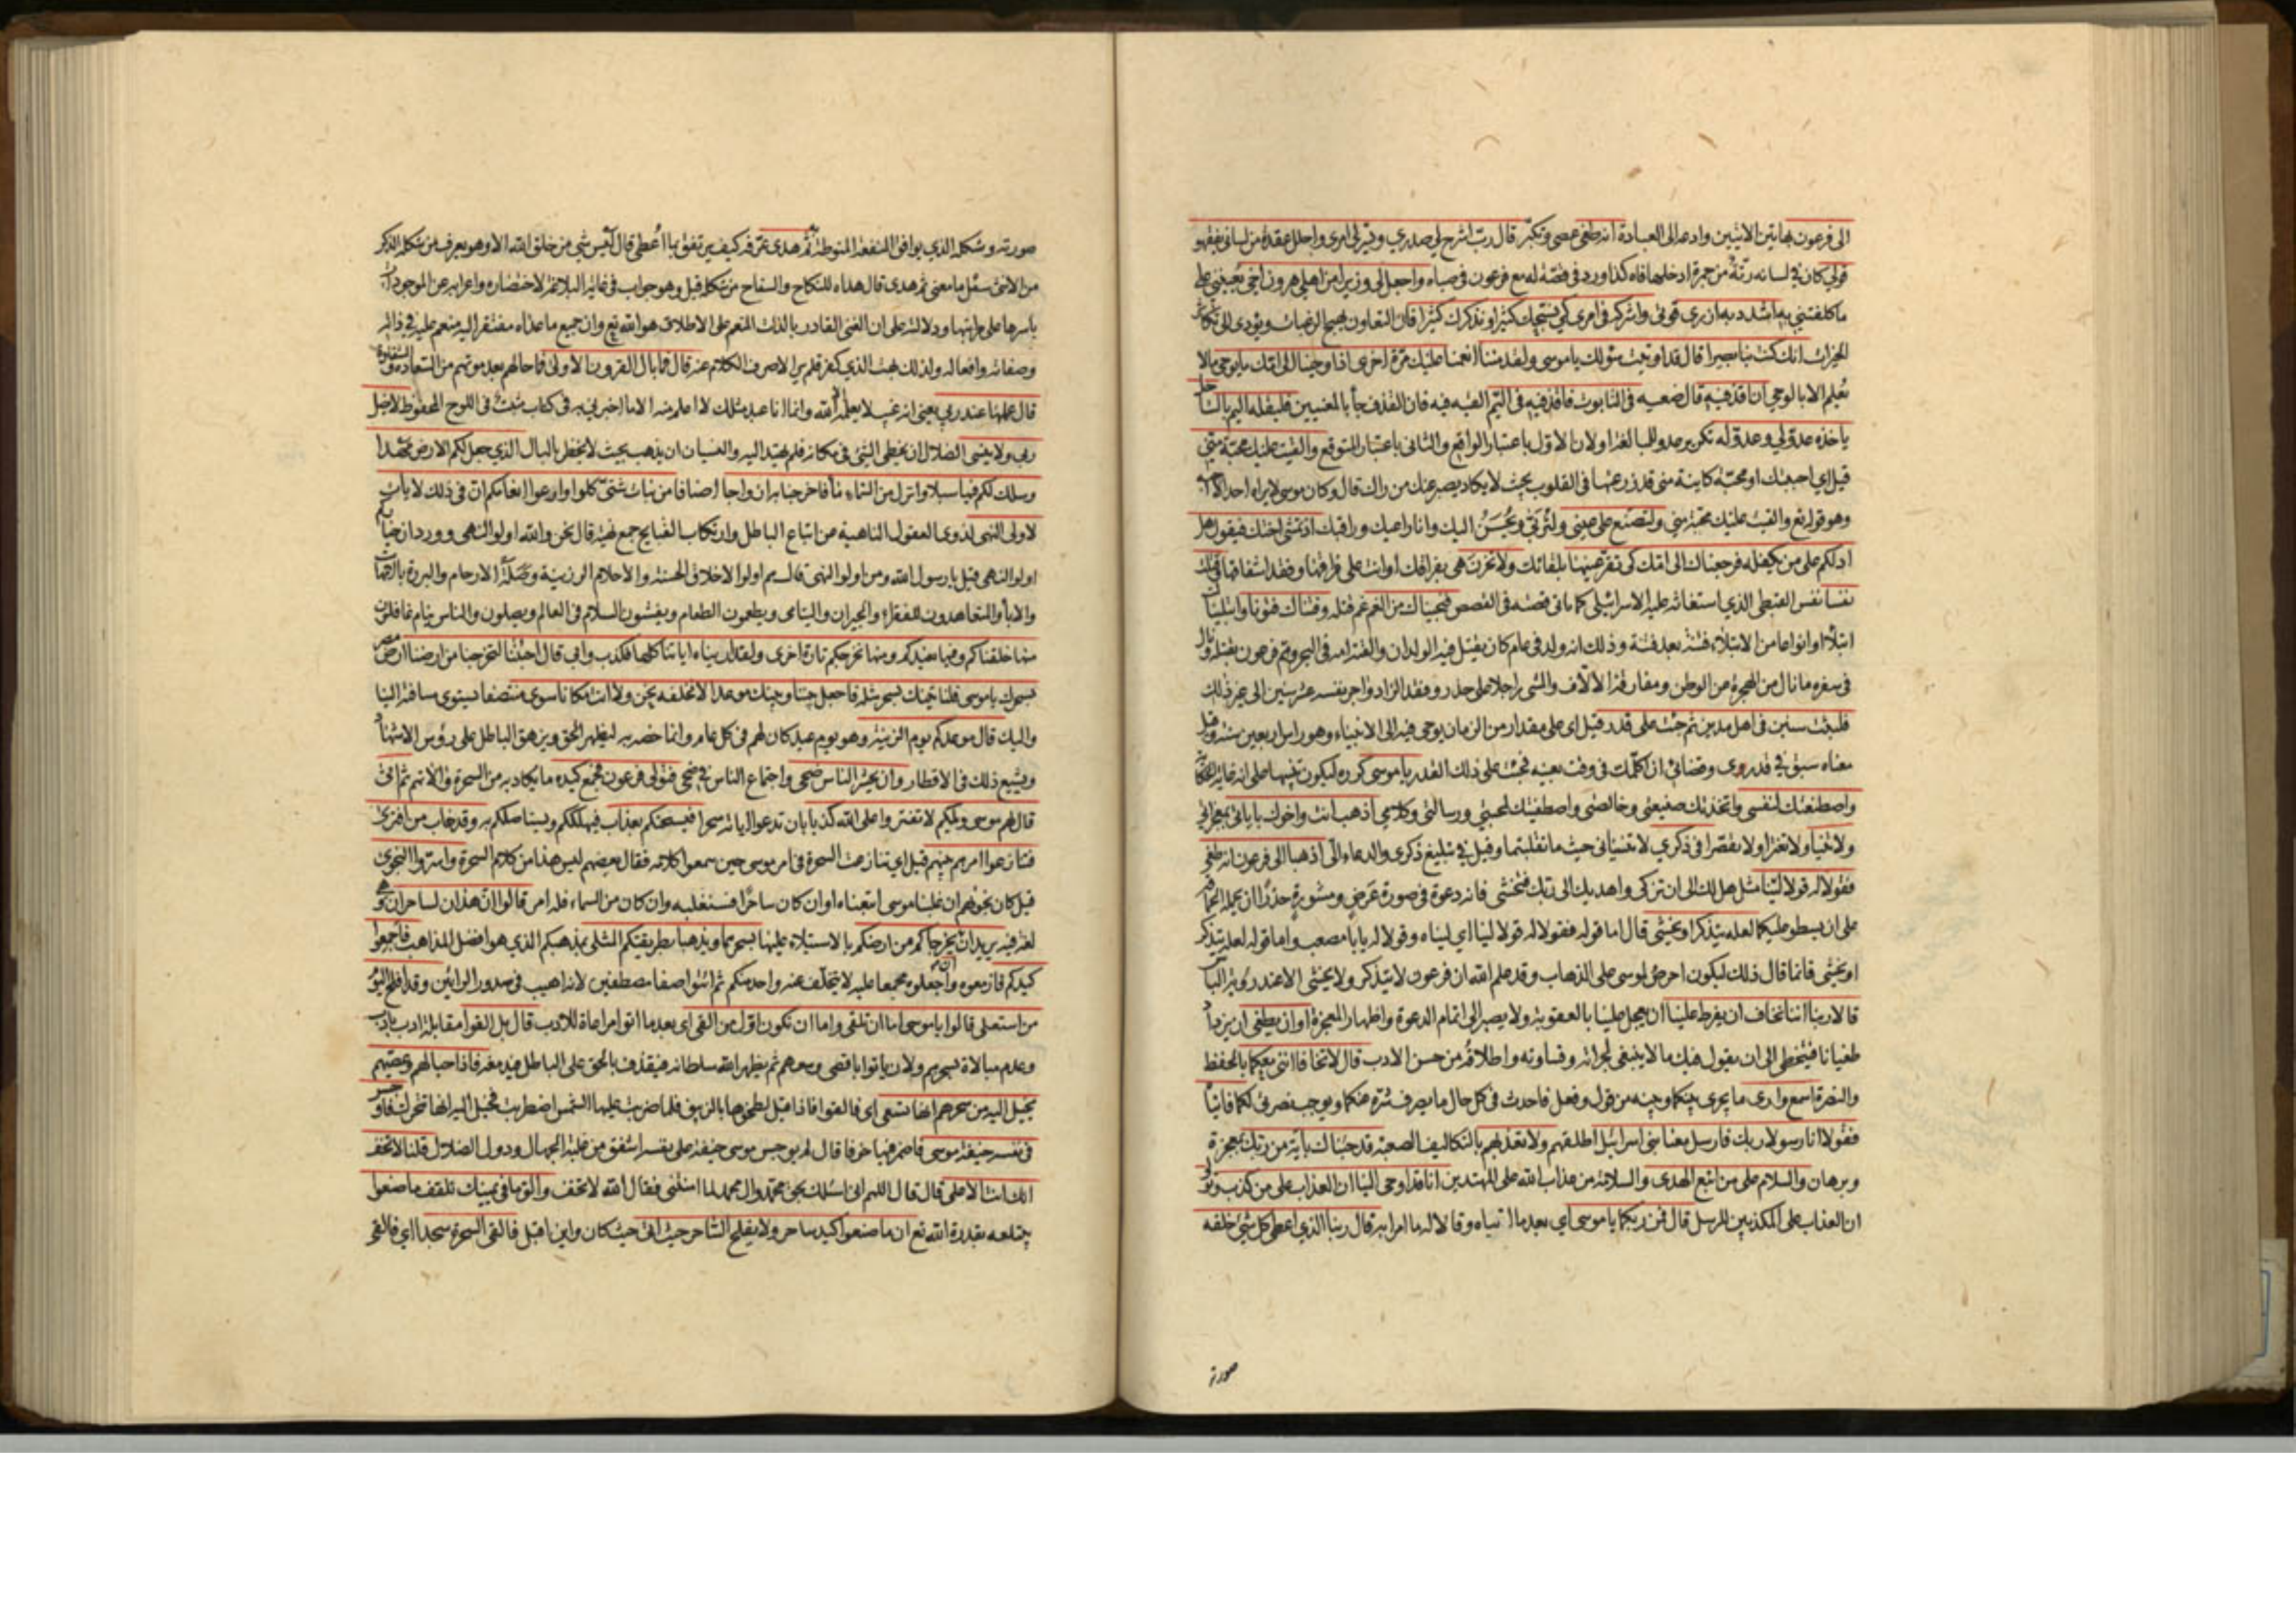 الى فرعون بهاتين الايتين وادعه الى العبادة انه طغى عصى وتكبر قال رب اشرح لي صدري ويسر لي امري واحلل عقدة من لساني يفقهو
قولي كان في لسانه رتة من جمرة ادخلها فاه كذا ورد في قصة له مع فرعون في صباه واجعل لي وزيرا من اهلي هرون اخي يعينني على
ما كلفتني به اشدد به ازري قوتي واشركه في امري كي نسبحك كثيرا ونذكرك كثيرا فان التعاون يهيج الرغبات ويؤدى الى تكاثر
الخيرات انك كنت بنا بصيرا قال قد اوتيت سؤلك ياموسى ولقد مننا انعمنا عليك مرة اخرى اذ اوحينا الى امك ما يوحى ما لا
يعلم الا بالوحي ان اقذفيه قال ضعيه في التابوت فاقذفيه في اليم القيه فيه فان القذف جأ بالمعنيين فليلقه اليم بالساحل
ياخذه عدو لي وعدو له تكرير عدو للمبالغة او لان الاول باعتبار الواقع والثانى باعتبار المتوقع والقيت عليك محبة مني
قيل اي احببتك او محبة كاينة مني قد زرعتها في القلوب بحيث لا يكاد يصبر عنك من راك قال وكان موسى لا يراه احد الا احبه
وهو قوله تع والقيت عليك محبة مني ولتصنع على عيني ولتربى ويحسن اليك وانا راعيك وراقبك اذ تمشى اختك فيقول هل
ادلكم على من يكفله فرجعناك الى امك كى تقر عينها بلقائك ولا تحزن هى بفراقك او انت على فراقها وفقد اشفاقها وقتلت
نفسا نفس القبطى الذي استغاثه عليه الاسرائيلى كما ياتى قصته في القصص فنجيناك من الغم غم قتله وفتناك فتونا وابتليناك
ابتلأ او انواعا من الابتلاء فتنة بعد فتنة وذلك انه ولد في عام كان يقتل فيه الولدان والقته امه في البحر وهم فرعون بقتله ونال
في سفره ما نال من الهجرة عن الوطن ومفارقة الالاف والمشى راجلا على حذر وفقد الزاد واجر نفسه عشر سنين الى غير ذلك
فلبثت سنين في اهل مدين ثم جئت على قدر قيل اى على مقدار من الزمان يوحى فيه الى الانبياء وهو راس اربعين سنة وقيل
معناه سبق في قدري وقضائي ان اكلمك في وقت بعينه فجئت على ذلك القدر ياموسى كرره ليكون تنبيها على انه غاية الحكاية
واصطنعتك لنفسي واتخذتك صنيعتي وخالصتى واصطفيتك لمحبتي ورسالتى وكلامي اذهب انت واخوك باياتى بمعجزاتي
ولا تنيا ولا تفترا ولا تقصرا في ذكري لا تنسيانى حيث ما تقلبتما وقيل في تبليغ ذكرى والدعاء الي اذهبا الى فرعون انه طغى
فقولا له قولا لينا مثل هل لك الى ان تزكى واهديك الى ربك فتخشى فانه دعوة في صورة عرض ومشورة حذرا ان يحمله الحماقة
على ان يسطو عليكما لعله يتذكر او يخشى قال اما قوله فقولا له قولا لينا اي لينا وقولا له يا با مصعب واما قوله لعله يتذكر
او يخشى فانما قال ذلك ليكون احرص لموسى على الذهاب وقد علم الله ان فرعون لا يتذكر ولا يخشى الا عند رؤية الباس
قالا ربنا اننا نخاف ان يفرط علينا ان يعجل علينا بالعقوبة ولا يصبر الى اتمام الدعوة واظهار المعجزة او ان يطغى ان يزداد
طغيانا فيتخطى الى ان يقول فيك ما لا ينبغي لجرأته وقساوته واطلاقه من حسن الادب قال لا تخافا انني معكما بالحفظ
والنصرة اسمع وارى ما يجرى بينكما وبينه من قول وفعل فاحدث في كل حال ما يصرف شره عنكما ويوجب نصرتى لكما فاتياه
فقولا انا رسولا ربك فارسل معنا بني اسرائيل اطلقهم ولا تعذبهم بالتكاليف الصعبة قد جئناك بآية من ربك بمعجزة
وبرهان والسلام على من اتبع الهدى والسلامة من عذاب الله على المهتدين انا قد اوحى الينا ان العذاب على من كذب وتولى
ان العذاب على المكذبين للرسل قال فمن ربكما ياموسى اي بعد ما اتياه وقالا له ما امرا به قال ربنا الذي اعطى كل شئ خلقه
صورته
صورته وشكله الذي يوافق المنفعة المنوطة به ثم هدى عرفه كيف يرتفق بما اعطى قال ليس شي من خلق الله الا وهو يعرف من شكله الذكر
من الانثى سئل ما معنى ثم هدى قال هداه للنكاح والسفاح من شكله قيل وهو جواب في غاية البلاغة لاختصاره واعرابه عن الموجودات
باسرها على مراتبها ودلالته على ان الغنى القادر بالذات المنعم على الاطلاق هو الله تع وان جميع ما عداه مفتقر اليه منعم عليه في ذاته
وصفاته وافعاله ولذلك بهت الذي كفر فلم ير الا صرف الكلام عنه قال فما بال القرون الاولى فما حالهم بعد موتهم من السعادة والشقاوة
قال علمها عند ربي يعني انه غيب لا يعلمه الا الله وانما انا عبد مثلك لا اعلم منه الا ما اخبرني به في كتاب مثبت في اللوح المحفوظ لا يضل
ربي ولا ينسى الضلال ان يخطى الشئ في مكانه فلم يهتد اليه والنسيان ان يذهب بحيث لا يخطر بالبال الذي جعل لكم الارض مهدا
وسلك لكم فيها سبلا وانزل من السماء مأ فاخرجنا به ازواجا اصنافا من نبات شتى كلوا وارعوا انعامكم ان في ذلك لايات
لاولى النهى لذوى العقول الناهية من اتباع الباطل وارتكاب القبايح جمع نهية قال نحن والله اولوا النهى وورد ان خياركم
اولوا النهى قيل يا رسول الله ومن اولوا النهى قال هم اولوا الاخلاق الحسنة والاحلام الرزينة وصلة الارحام والبررة بالامهات
والابأ والمتعاهدون للفقراء والجيران واليتامى ويطعمون الطعام ويفشون السلام في العالم ويصلون والناس نيام غافلون
منها خلقناكم وفيها نعيدكم ومنها نخرجكم تارة اخرى ولقد اريناه اياتنا كلها فكذب وابى قال اجئتنا لتخرجنا من ارضنا ارض مصر
بسحرك ياموسى فلناتينك بسحر مثله فاجعل بيننا وبينك موعدا لا نخلفه نحن ولا انت مكانا سوى منتصفا يستوى مسافته الينا
واليك قال موعدكم يوم الزينة وهو يوم عيد كان لهم في كل عام وانما خصه به ليظهر الحق ويزهق الباطل على رؤس الاشهاد
ويشيع ذلك في الاقطار وان يحشر الناس ضحى واجتماع الناس في ضحى فتولى فرعون فجمع كيده ما يكاد به من السحرة والاتهم ثم اتى
قال لهم موسى ويلكم لا تفتروا على الله كذبا بان تدعوا اياته سحرا فيسحتكم بعذاب فيهلككم ويستاصلكم به وقد خاب من افترى
فتنازعوا امرهم بينهم قيل اي تنازعت السحرة في امر موسى حين سمعوا كلامه فقال بعضهم ليس هذا من كلام السحرة واسروا النجوى
قيل كان نجويهم ان غلبنا موسى اتبعناه او ان كان ساحرا فسنغلبه وان كان من السماء فله امر قالوا ان هذان لساحران
لغة فيه يريدان ان يخرجاكم من ارضكم بالاستيلاء عليها بسحرهما ويذهبا بطريقتكم المثلى بمذهبكم الذي هو افضل المذاهب فاجمعوا
كيدكم فازمعوه واجعلوه مجمعا عليه لا يتخلف عنه واحد منكم ثم ائتوا صفا مصطفين لانه اهيب في صدور الرائين وقد افلح اليوم
من استعلى قالوا ياموسى اما ان تلقى واما ان نكون اول من القى اى بعد ما اتوا مراعاة للادب قال بل القوا مقابلة ادب بادب
وعدم مبالاة بسحرهم ولان ياتوا باقصى وسعهم ثم يظهر الله سلطانه فيقذف بالحق على الباطل فيدمغه فاذا حبالهم وعصيهم
يخيل اليه من سحرهم انها تسعى اى فالقوا فاذا قيل لطخوها بالزيبق فلما ضربت عليها الشمس اضطربت فخيل اليه انها تتحرك فاوجس
في نفسه خيفة موسى فاضمر فيها خوفا قال لم يوجس موسى خيفة على نفسه اشفق من غلبة الجهال ودول الضلال قلنا لا تخف
انك انت الاعلى قال قال اللهم انى اسئلك بحق محمد وال محمد لما امنتنى فقال الله لا تخف والق ما في يمينك تلقف ما صنعوا
يبتلعه بقدرة الله تع ان ما صنعوا كيد ساحر ولا يفلح الساحر حيث اتى حيث كان واين اقبل فالقى السحرة سجدا اي فالقى